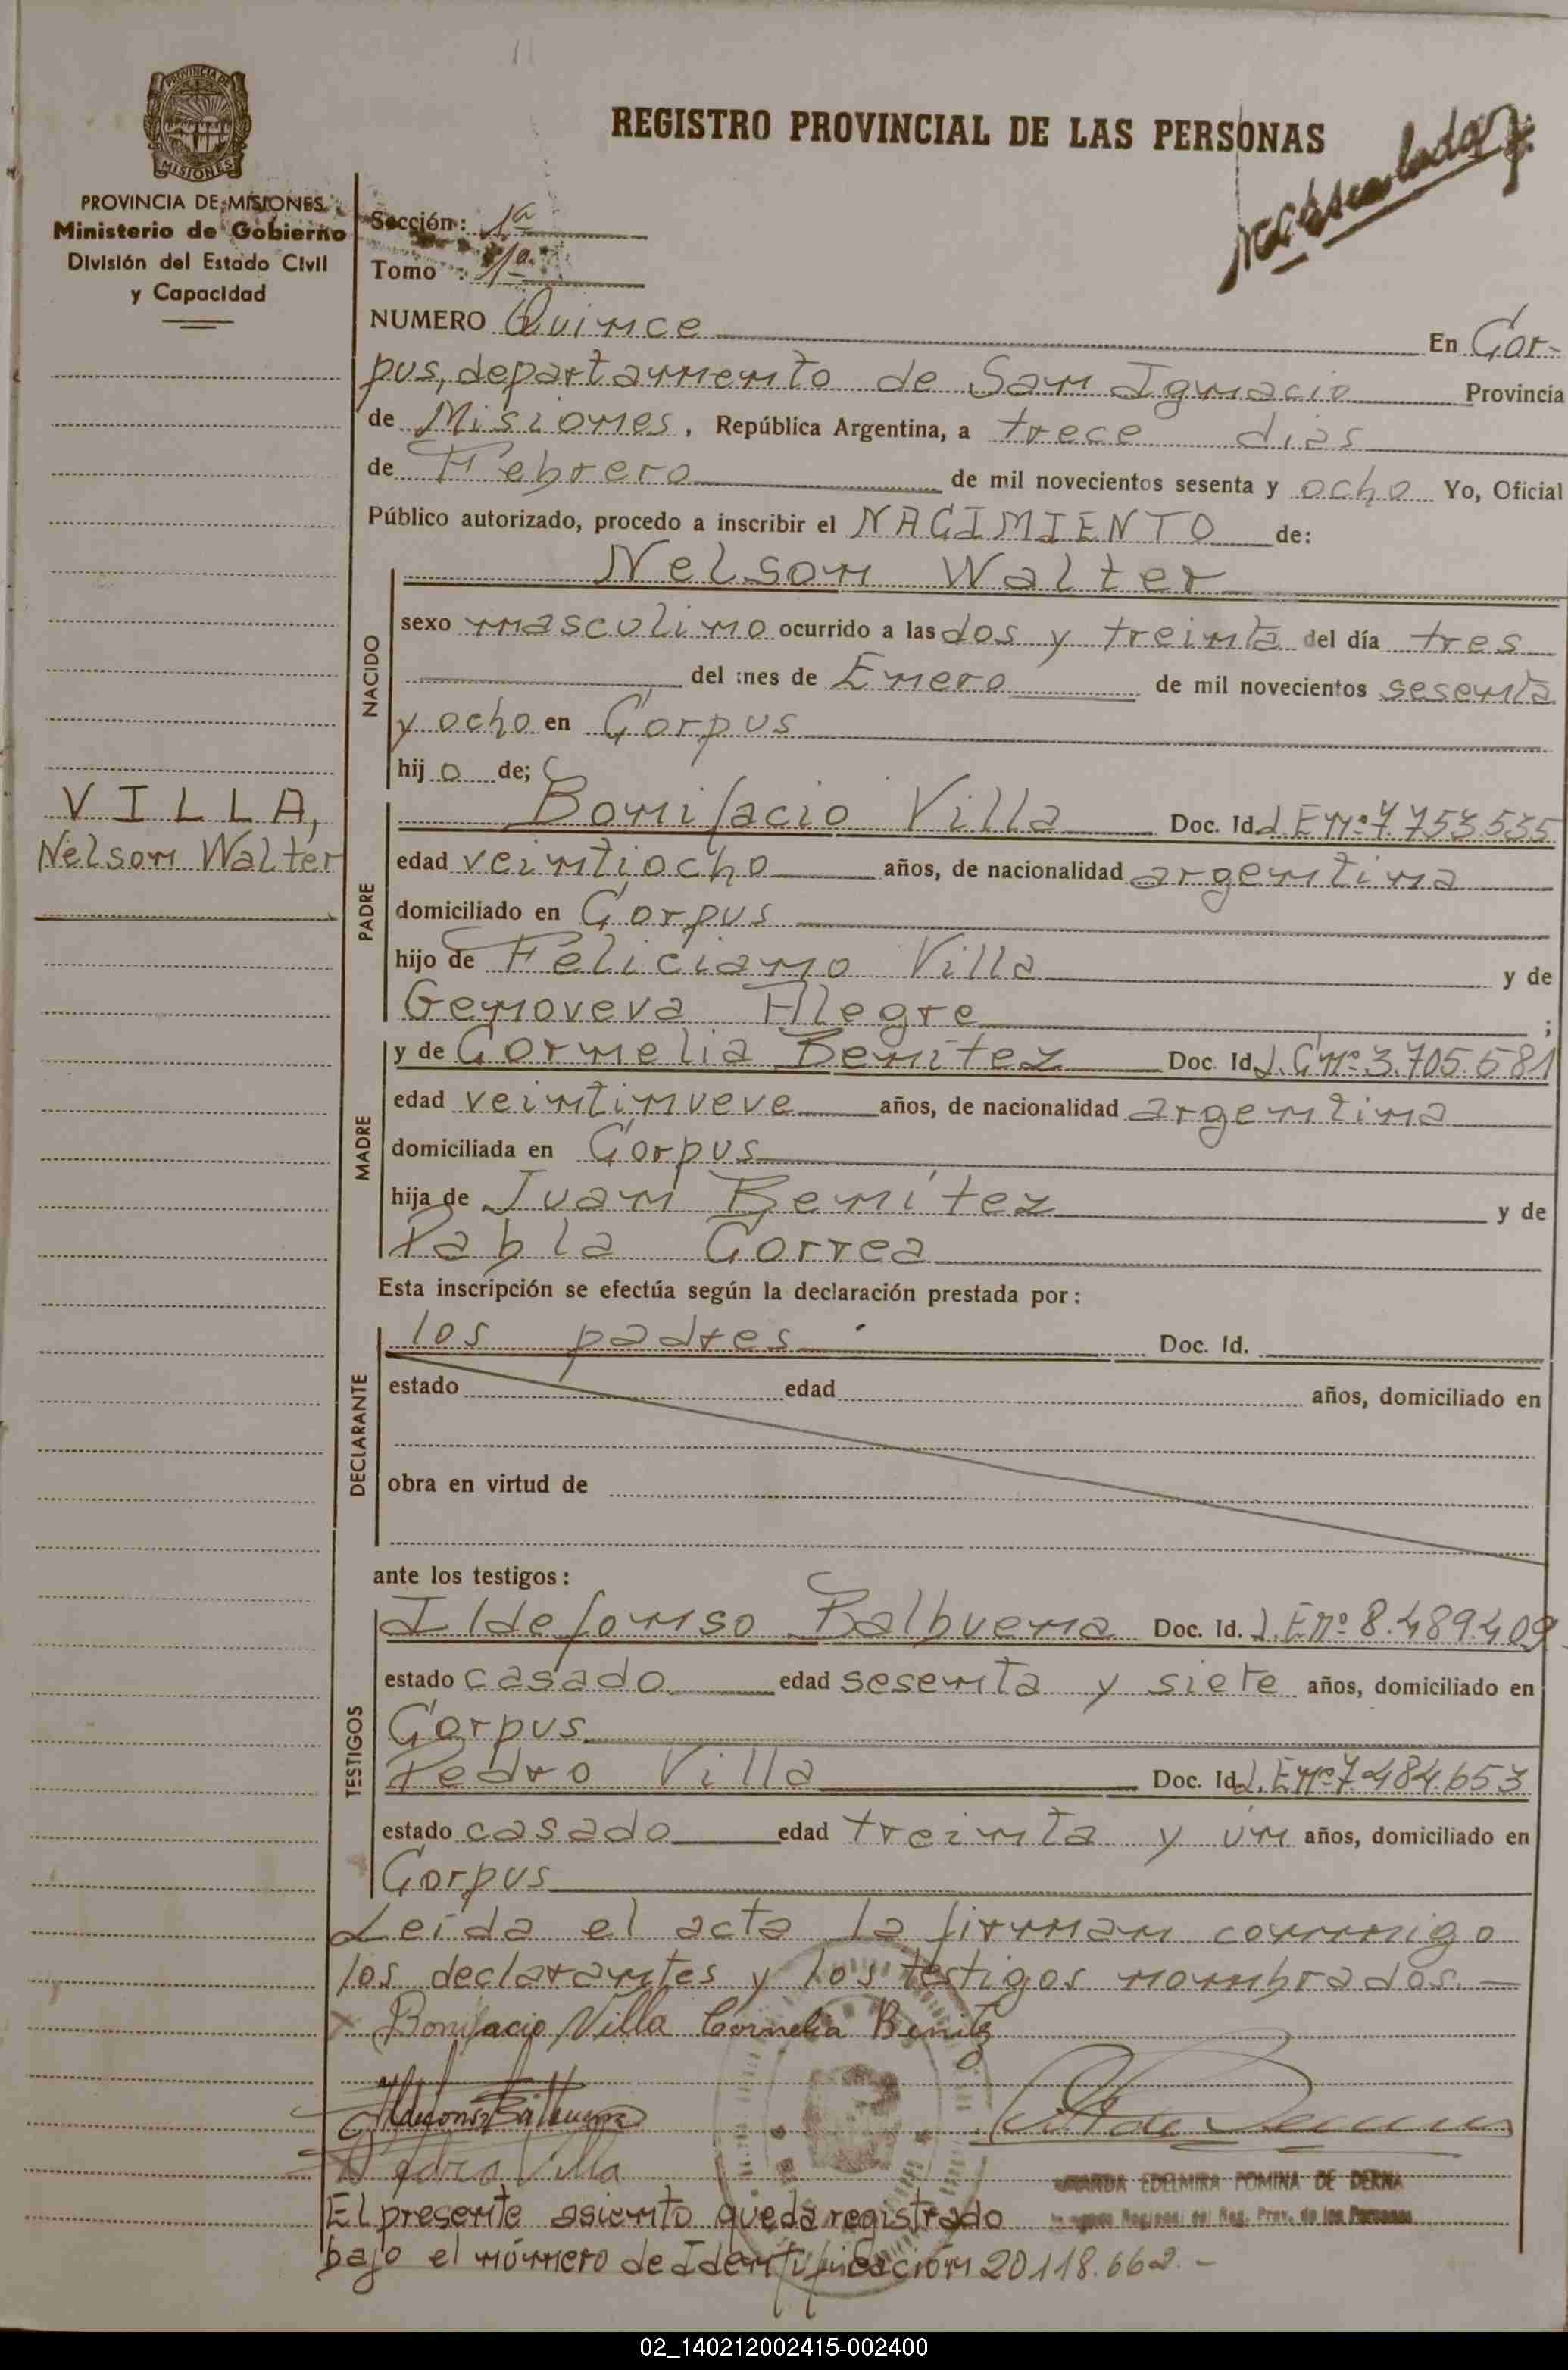 PROVINCIA DE
MISIONES
REGISTRO PROVINCIAL DE LAS PERSONAS
PROVINCIA DE MISIONES
Ministerio de Gobierno
División del Estado Civil
y Capacidad
Sección: 1a
Tomo : 1a.
NUMERO Quince
En Cor-
pus, departamento de San Ignacio Provincia
de Misiones, República Argentina, a trece dias
de Febrero de mil novecientos sesenta y ocho Yo, Oficial
Público autorizado, procedo a inscribir el NACIMIENTO de:
Nelson Walter
NACIDO
sexo masculino ocurrido a las dos y treinta del día tres
del mes de Enero de mil novecientos sesenta
y ocho en Corpus
hij o de;
VILLA,
Nelson Walter
PADRE
Bonifacio Villa Doc. Id. L E Nº 7.753.535
edad veintiocho años, de nacionalidad argentina
domiciliado en Corpus
hijo de Feliciano Villa y de
Genoveva Alegre ;
MADRE
y de Cornelia Benitez Doc. Id. L.C Nº 3.705.581
edad veintinueve años, de nacionalidad argentina
domiciliada en Corpus
hija de Juan Benítez y de
Pabla Correa
Esta inscripción se efectúa según la declaración prestada por:
DECLARANTE
los padres Doc. Id.
estado edad años, domiciliado en
obra en virtud de
ante los testigos:
TESTIGOS
Ildefonso Balbuena Doc. Id. L.E Nº 8.489.409
estado casado edad sesenta y siete años, domiciliado en
Corpus
Pedro Villa Doc. Id. L.E Nº 7.484.653
estado casado edad treinta y un años, domiciliado en
Corpus
Leída el acta la firman conmigo
los declarantes y los testigos nombrados.—
Bonifacio Villa Cornelia Benitez
Ildefonso Balbuena
Pedro Villa
EDELMIRA POMINA DE DERNA
Reg. Prov. de las Personas
El presente asiento queda registrado
bajo el número de Identificación 20118.662.-
02_140212002415-002400